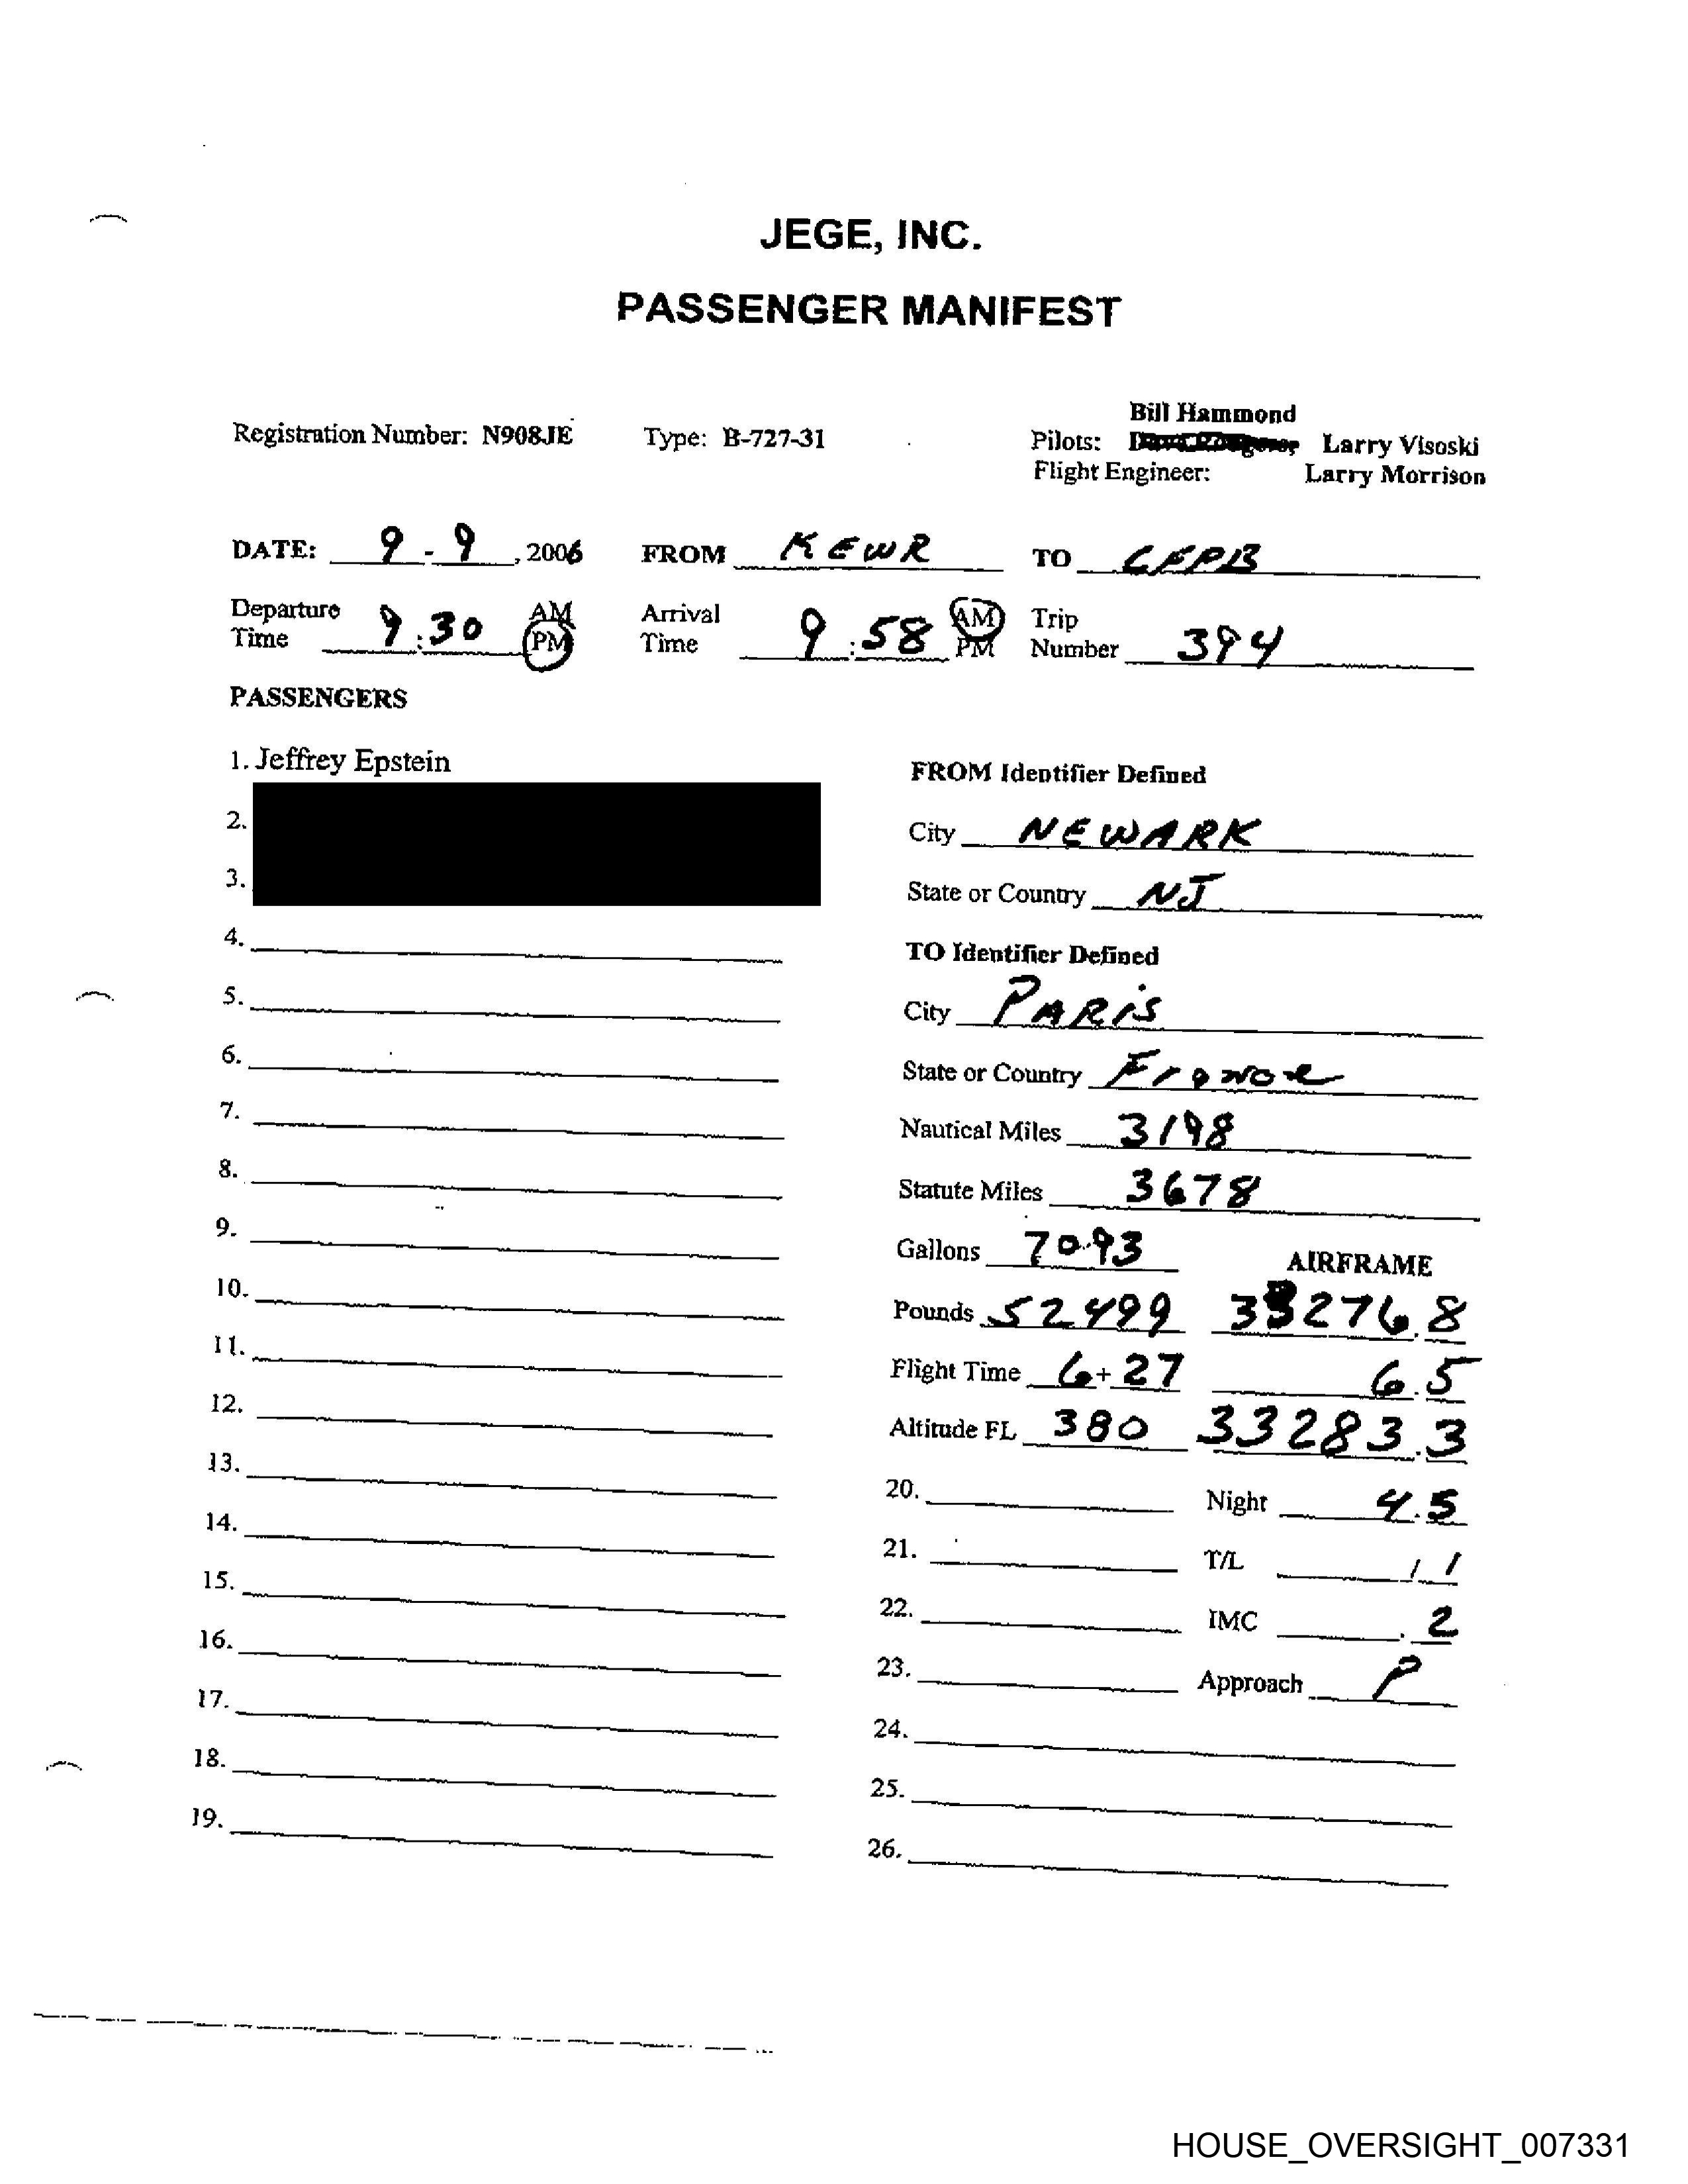 JEGE, INC.
PASSENGER MANIFEST
Bill Hammond
Registration Number: N908JE Type: B-727-31 Pilots: Larry Visoski
Flight Engineer: Larry Morrison
DATE: 9-9, 2006 FROM KEWR TO LFPB
Departure Time 9:30 AM PM Arrival Time 9:58 AM PM Trip Number 394
PASSENGERS
1. Jeffrey Epstein
2.
3.
4.
5.
6.
7.
8.
9.
10.
11.
12.
13.
14.
15.
16.
17.
18.
19.
FROM Identifier Defined
City NEWARK
State or Country NJ
TO Identifier Defined
City PARIS
State or Country France
Nautical Miles 3198
Statute Miles 3678
Gallons 7093 AIRFRAME
Pounds 52499 33276.8
Flight Time 6+27 6.5
Altitude FL 380 33283.3
20. Night 4.5
21. T/L 1/1
22. IMC .2
23. Approach P
24.
25.
26.
HOUSE_OVERSIGHT_007331